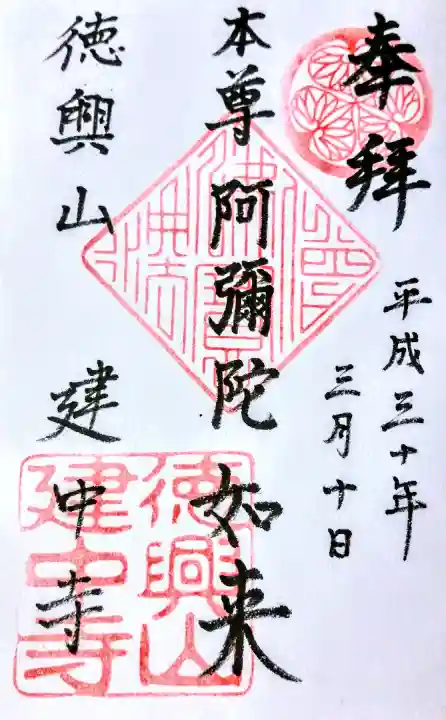 奉拝
平成三十年
三月十日
本尊 阿彌陀如来
徳興山 建中寺
徳興山
建中寺